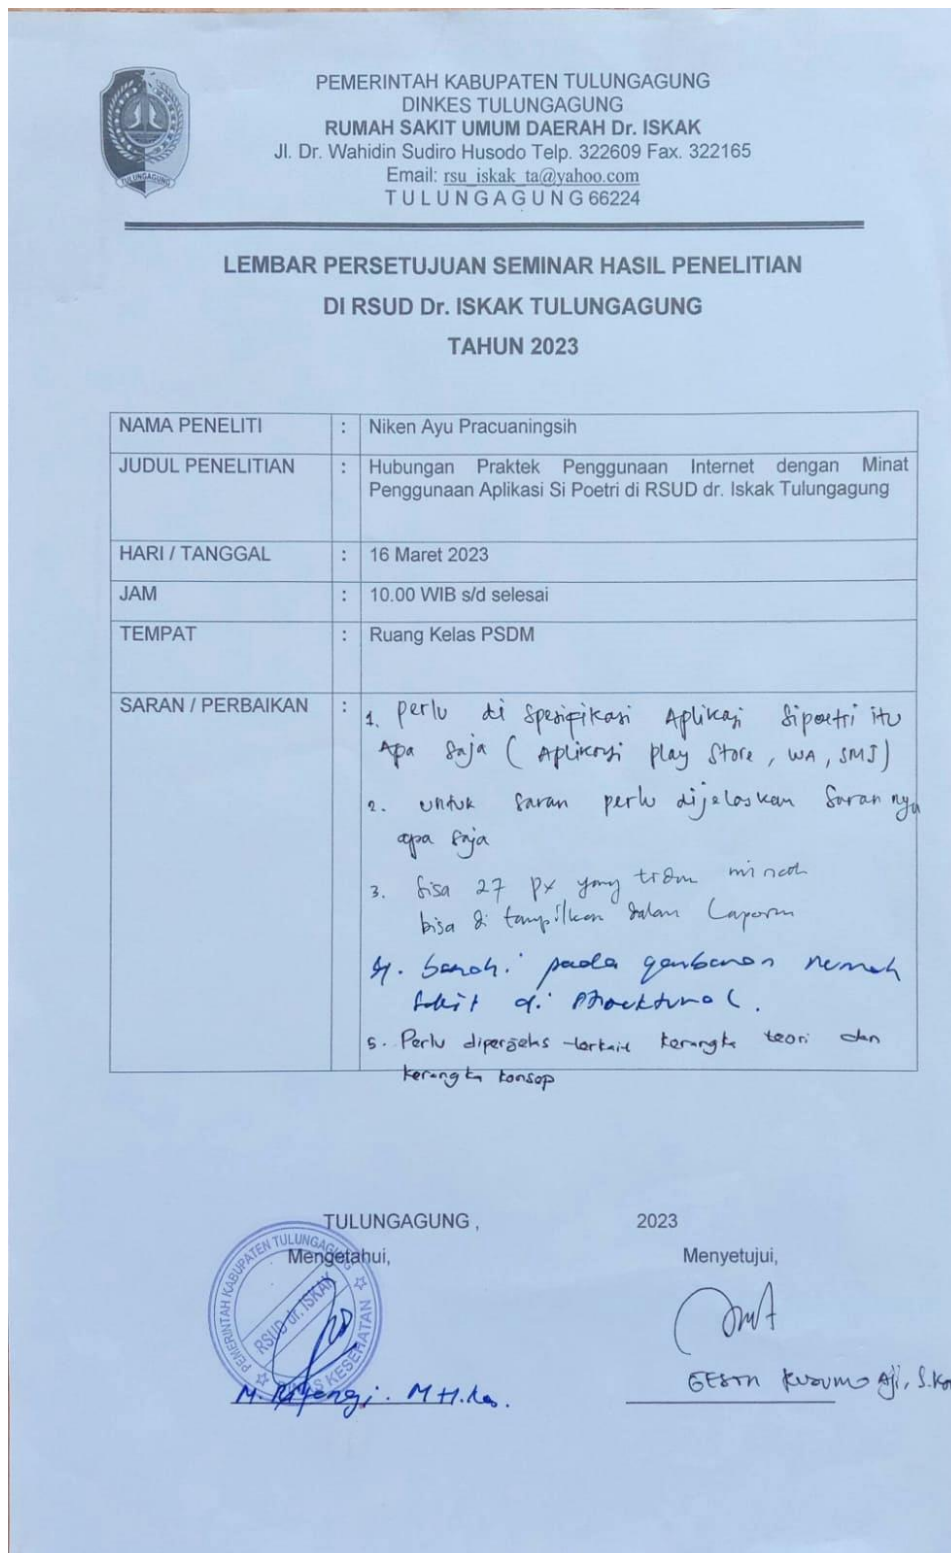 PEMERINTAH KABUPATEN TULUNGAGUNG
DINKES TULUNGAGUNG
RUMAH SAKIT UMUM DAERAH Dr. ISKAK
Jl. Dr. Wahidin Sudiro Husodo Telp. 322609 Fax. 322165
Email: rsu_iskak_ta@yahoo.com
TULUNGAGUNG 66224
TULUNGAGUNG
LEMBAR PERSETUJUAN SEMINAR HASIL PENELITIAN
DI RSUD Dr. ISKAK TULUNGAGUNG
TAHUN 2023
NAMA PENELITI : Niken Ayu Pracuaningsih
JUDUL PENELITIAN : Hubungan Praktek Penggunaan Internet dengan Minat
Penggunaan Aplikasi Si Poetri di RSUD dr. Iskak Tulungagung
HARI / TANGGAL : 16 Maret 2023
JAM : 10.00 WIB s/d selesai
TEMPAT : Ruang Kelas PSDM
SARAN / PERBAIKAN : 1. perlu di spesifikasi Aplikasi Sipoetri itu
Apa saja ( Aplikasi play Store , WA , SMS )
2. untuk saran perlu dijelaskan sarannya
apa saja
3. sisa 27 px yang
bisa di tampilkan dalam Laporan
4. pada
sakit di
5. Perlu diperjelas terkait kerangka teori dan
kerangka konsop
TULUNGAGUNG , 2023
Mengetahui, Menyetujui,
PEMERINTAH KABUPATEN TULUNGAGUNG
RSUD dr. ISKAK
KESEHATAN
M. M H.Kes.
Kusumo Aji, S.Ko